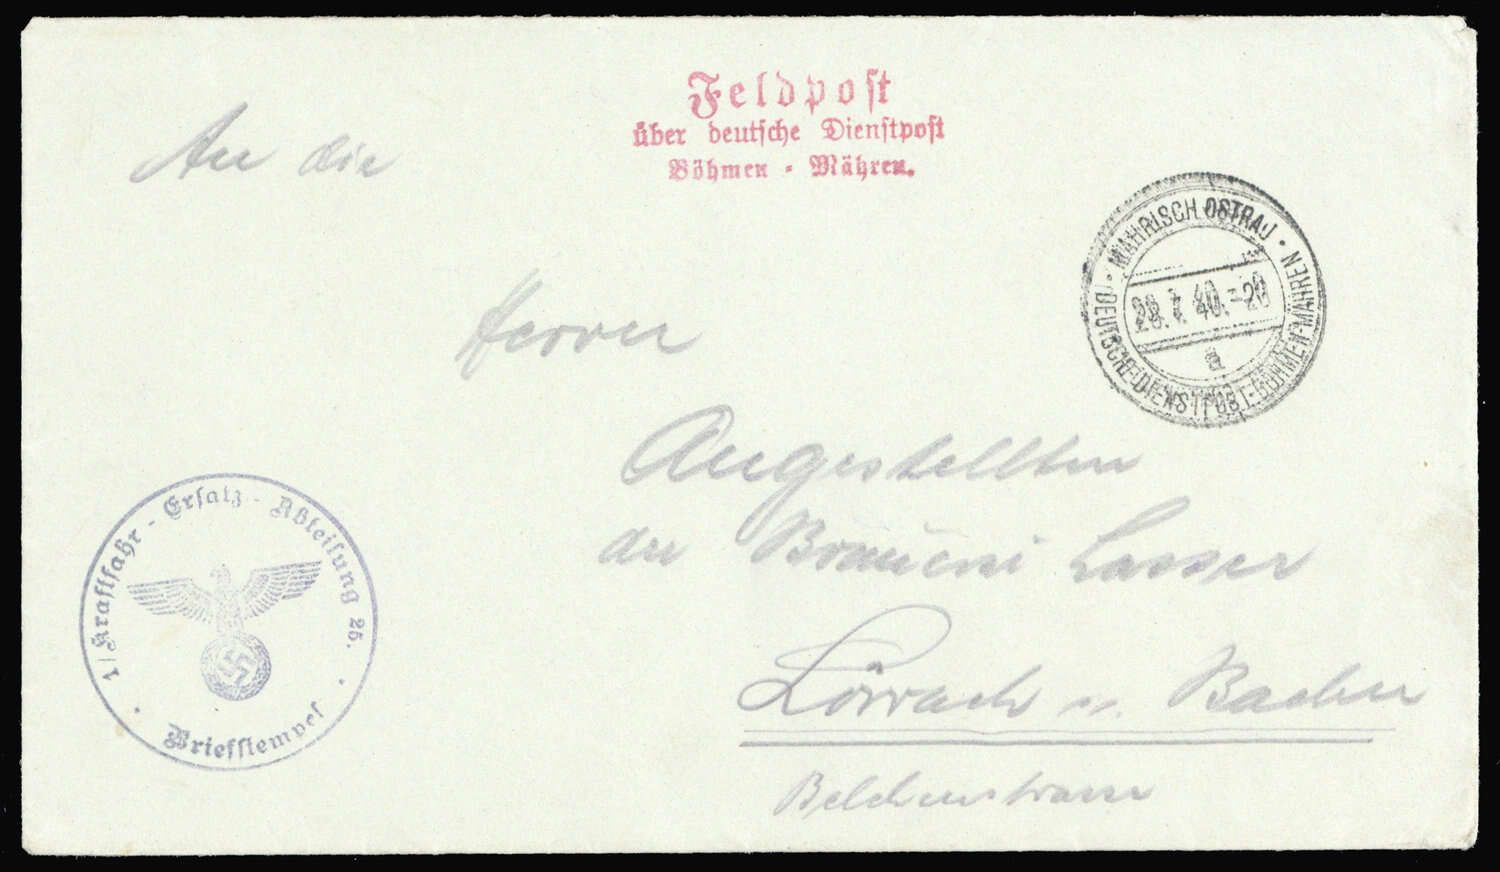 Feldpost
über deutsche Dienstpost
Böhmen - Mähren.
An die
MÄHRISCH OSTRAU
28. 7. 40. - 20
a
DEUTSCHE-DIENSTPOST-BÖHMEN-MÄHREN
Herren
Angestellten
der Brauerei Lasser
Lörrach i. Baden
Belchenstrasse
1/Kraftfahr-Ersatz-Abteilung 25.
Briefstempel